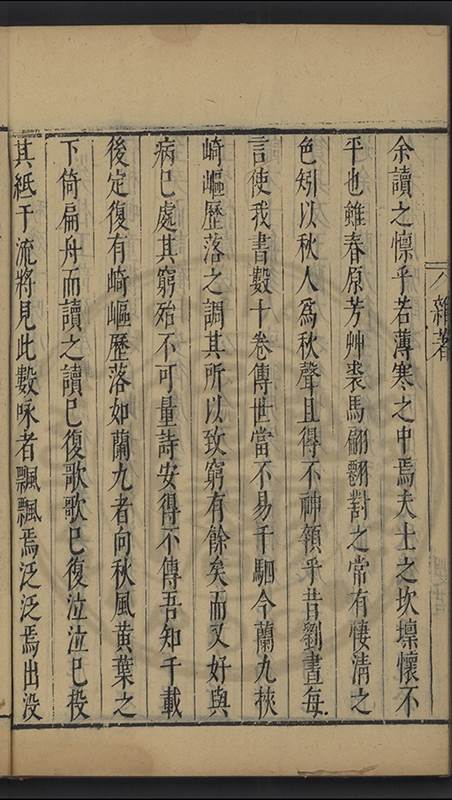 雜著
余讀之懔乎若薄寒之中焉夫士之坎壈懷不
平也雖春原芳艸裘馬翩翻對之常有悽清之
色矧以秋人爲秋聲且得不神領乎昔劉晝每
言使我書數十卷傳世當不易千駟今蘭九挾
崎嶇歷落之調其所以致窮有餘矣而又好與
病已處其窮殆不可量詩安得不傳吾知千載
後定復有崎嶇歷落如蘭九者向秋風黄葉之
下倚扁舟而讀之讀已復歌歌已復泣泣已投
其紙于流將見此數咏者飄飄焉泛泛焉出没